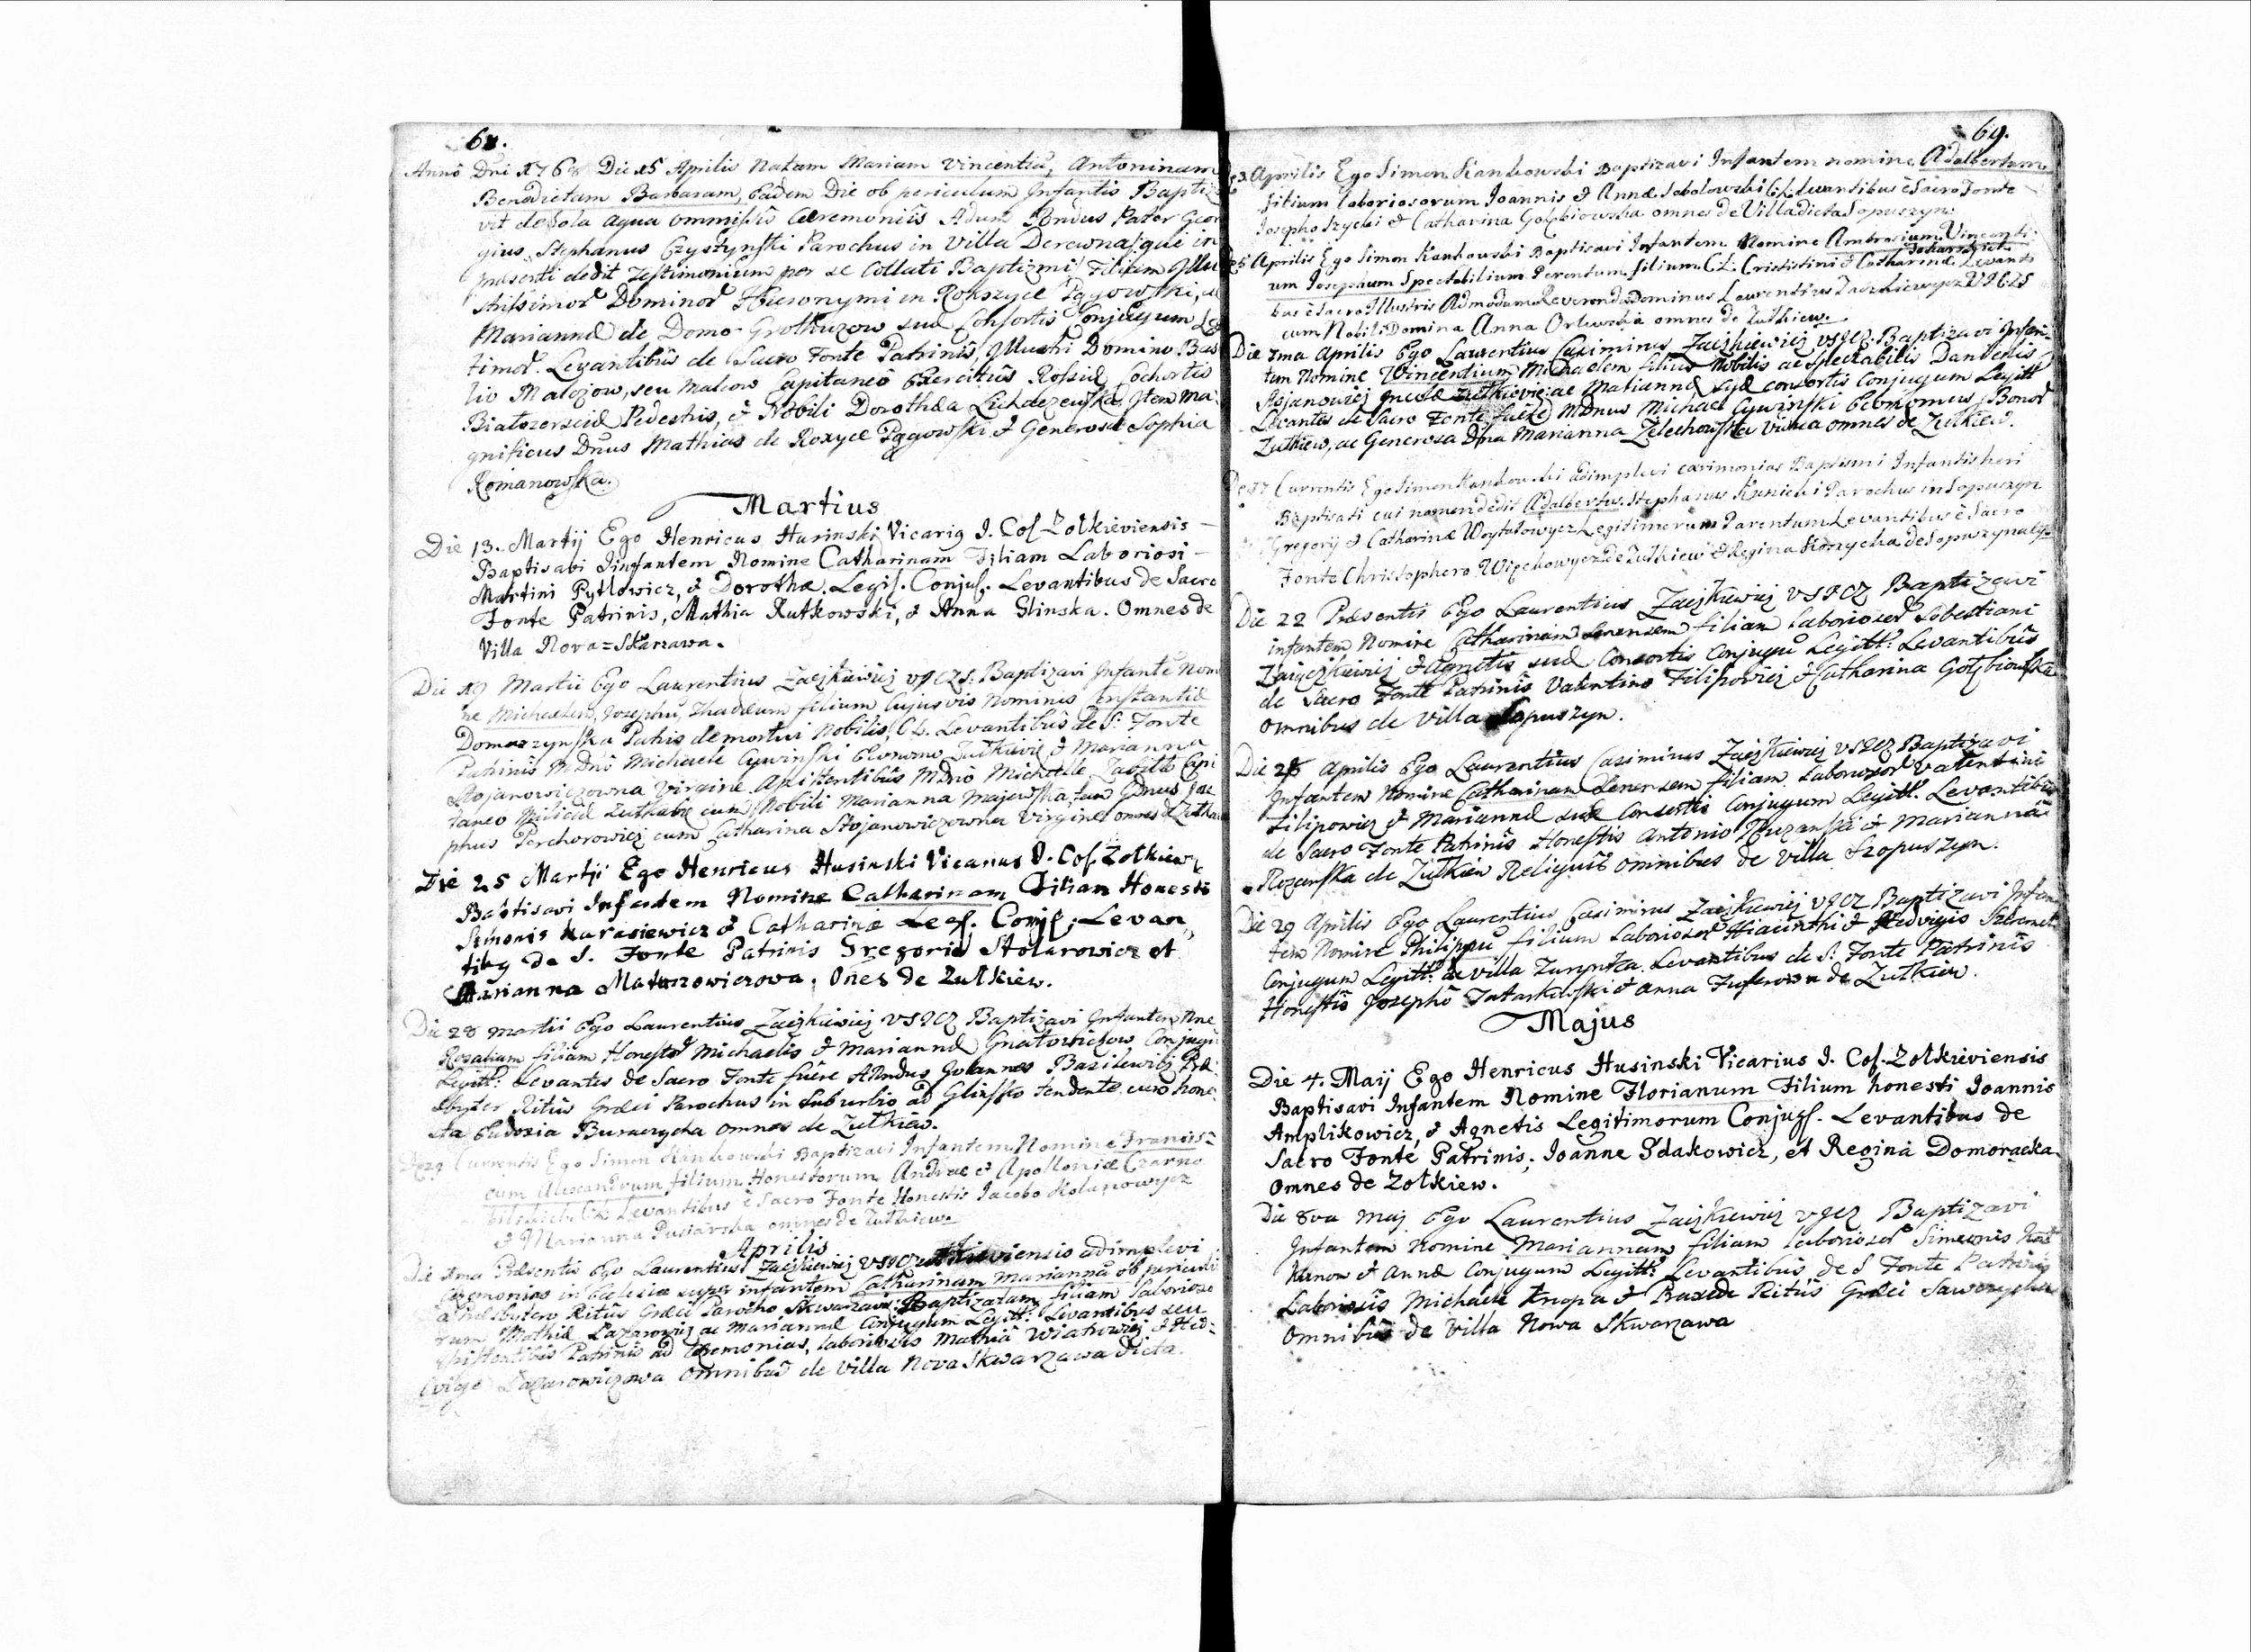 68.
Anno Dni 1768 Die 15 Aprilis Natam Mariam Vincentiã, Antoninam
Benedictam Barbaram, Eadem Die ob periculum Infantis Baptiza
vit de sola aqua ommissis Caeremoniis Adum Rndus Pater Geor
gius Stephanus Czystynski Parochus in Villa Derewna, qui in
praesenti dedit Testimonium per se Collati Baptizmi Filiam Illu
strissimor Dominor Hieronymi in Rokszyce Pągowski, ac
Mariannae de Domo Grothuzow suae Consortis Conjugum Le
timor. Levantibus de Sacro Fonte Patrinis, Illustri Domino Basi
lio Malczow, seu Malcow Capitaneo Exercitus Rossiae Cochortis
Białozerscie Pedestris, & Nobili Dorothea Lichaczewska, Item Ma
gnificus Dnus Mathias de Roxyce Pągowski & Generosa Sophia
Romanowska.
Martius
Die 13. Martij Ego Henricus Husinski Vicarig I. Col Zolkieviensis
Baptisabi Iinfantem Nomine Catharinam Filiam Laboriosi
Martini Pytlowicz, & Dorothæ. Legis. Conjus. Levantibus de Sacro
Fonte Patrinis, Mathia Rutkowski, & Anna Glinska. Omnes de
Villa Nova=Skarzawa.
Die 19 Martii Ego Laurentius Zaczkiewicz VICZS: Baptizavi Infante Nomi
ne Michaelem, Josephũ, Thadæum filium cujusvis Nominis Constantiæ
Domaszynska Patris demortui Nobilis, CL. Levantibus de S: Fonte
Patrinis Mdno Michaele Cywinski Economo Zulkieviæ & Marianna
Stojanowiczowna Virgine Assistentibus Mdno Michaele Capi
taneo Militiæ Zulkoviæ cum Nobili Marianna Majewska, tum Gdnus Jose
phus Perchorowicz cum Catharina Stojanowiczowna Virgine omnes de Zulkiew
Die 25 Martji Ego Henricus Husinski Vicarius I. Col Zolkiew
Babtisavi Infantem Nomine Catharinam Filian Honesti
Simonis Karasiewicz & Catharinæ Leg. Conjs; Levan
tibg de S. Fonte Patrinis Gregorio Stolarowicz et
Marianna Matuszowiczowa. Ones de Zulkiew.
Die 28 Martii Ego Laurentius Zaczkiewicz VSICZ Baptizavi Infantem Nne
Rozaliam filiam Honestor Michaelis & Mariannæ Gnatowiczow Conjugũ
Legitt: Levantes de Sacro Fonte fuere ARndus Joannes Basilewicz Præ
sbyter Ritus Græci Parochus in Suburbio ad Glinsko tendente cum hone
sta Eudoxia omnes de Zulkiew.
Die 29 Currentis Ego Simon Kankowski Baptizavi Infantem Nomine Francis=
cum Alexandrum filium Honestorum Andreæ & Apolloniæ Czarno
Levantibus è Sacro Fonte Honestis Iacobo Kolanowycz
& Marianna Pusiarska omnes de Zulkiew
Aprilis
Die 1ma Præsentis Ego Laurentius Zaczkiewicz VSICZ adimplevi
Cæremonias in Ecclesia super infantem Catharinam Mariannã ob periculũ
a Præsbytero Ritus Græci Parocho Skwarzavæ Baptizatam, filiam Laborioso
rum Mathiæ Lazarowicz ac Mariannæ Conjugum Legitt: Levantibus seu
Assistentibus Patrinis ad Cæremonias, laboriosis Mathia Wiatrowicz & Hed=
wige Lazarowiczowa Omnibus de Villa Nova Skwarzawa dicta.
69.
3 Aprilis Ego Simon Kankowski Baptizavi Infantem nomine Adalbertum
filium Laboriosorum Ioannis & Annæ Sobolowski CL Levantibus è Sacro Fonte
Iosepho Szycki & Catharina Golębiowska omnes de Villa dicta Sopuszyn.
5 Aprilis Ego Simon Kankowski Baptisavi Infantem Nomine Ambrosium Vincenti
um Iosephum Spectabilium Perentum filium CL. Crististini & Catharinæ Levanti
bus è Sacro Illustris Admodum Reverendus Dominus Laurentius Zaczkiewycz
cum Nobili Domina Anna Orlewska omnes de Zulkiew.
Die 7ma Aprilis Ego Laurentius Casimirus Zaczkiewicz VSICZ. Baptizavi Infan
tem Nomine Wincentium Michaelem filium Nobilis ac Spectabilis Danielis
Stojanowicz Incolæ Zulkieviæ ac Mariannæ suæ consortis Conjugum Legitt
Levantes de Sacro Fonte fuere Mdnus Michael Cywinski Economus Bonor
Zulkiew, ac Generosa Dna Marianna Zelechowska omnes de Zulkiew.
Die 17 Currentis Ego Simon Kankowski adimplevi cærimonias Baptismi Infantis heri
Baptisati cui nomen dedit Adalbertus Stephanus Kunicki Parochus in Sopuszyn
Gregorij & Catharinæ Woytulowycz Legitimorum Parentum Levantibus è Sacro
Fonte Christophero Wiechowycz de Zulkiew & Regina Konycha de Sopuszyn
Die 22 Præsentis Ego Laurentius Zaczkiewicz VSICZ Baptizavi
infantem Nomine Catharinam Senensem filiam Laboriosor Sebestiani
Zaiączkiewicz & Agnetis suæ Consortis Conjugũ Legitt: Levantibus
de Sacro Fonte Patrinis Valentino Filipowicz & Catharina Gołębiowska
Omnibus de Villa Sopuszyn.
Die 28 Aprilis Ego Laurentius Casimirus Zaczkiewicz VSICZ Baptizavi
Infantem Nomine Catharinam Senensem filiam Laboriosor Valentini
Filipowicz & Mariannæ suæ Consortis Conjugum Legitt. Levantibus
de Sacro Fonte Patrinis Honestis Antonio Ruzanski & Marianna
Rozanska de Zulkiew Reliquis omnibus de villa Szopuszyn.
Die 29 Aprilis Ego Laurentius Casimirus Zaczkiewicz VSICZ Baptizavi Infan
tem Nomine Philippũ filium Laboriosor Hiacinthi & Hedvigis
Conjugum Legitt: de Villa Levantibus de S: Fonte Patrinis
Honestis Josepho Tatarkowski & Anna de Zulkiew.
Majus
Die 4. Maij Ego Henricus Husinski Vicarius I. Col. Zolkieviensis
Baptisavi Infantem Nomine Florianum Filium honesti Ioannis
Amplikowicz, & Agnetis Legitimorum Conjugs. Levantibus de
Sacro Fonte Patrinis; Ioanne Zdakowicz, et Regina Domoracka
Omnes de Zolkiew.
Die 8va Maj Ego Laurentius Zaczkiewicz VSICZ Baptizavi
Infantem Nomine Mariannam filiam laboriosor Simeonis
& Annæ Conjugum Legitt: Levantibus de S Fonte Patrinis
Laboriosis Michaele Knopa & Praxede Ritus Græci Sawczycha
Omnibus de Villa Nowa Skwarzawa